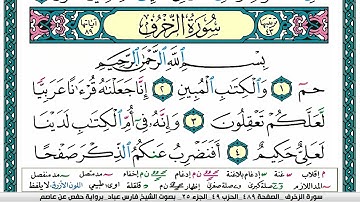 سُورَةُ الزُّخْرُفِ
بِسْمِ ٱللَّهِ ٱلرَّحْمَٰنِ ٱلرَّحِيمِ
حمٓ ١ وَٱلْكِتَٰبِ ٱلْمُبِينِ ٢ إِنَّا جَعَلْنَٰهُ قُرْءَٰنًا عَرَبِيًّا
لَّعَلَّكُمْ تَعْقِلُونَ ٣ وَإِنَّهُۥ فِىٓ أُمِّ ٱلْكِتَٰبِ لَدَيْنَا
لَعَلِىٌّ حَكِيمٌ ٤ أَفَنَضْرِبُ عَنكُمُ ٱلذِّكْرَ صَفْحًا
سورة الزخرف الصفحة ٤٨٩ الحزب ٤٩ الجزء ٢٥ بصوت الشيخ فارس عباد برواية حفص عن عاصم